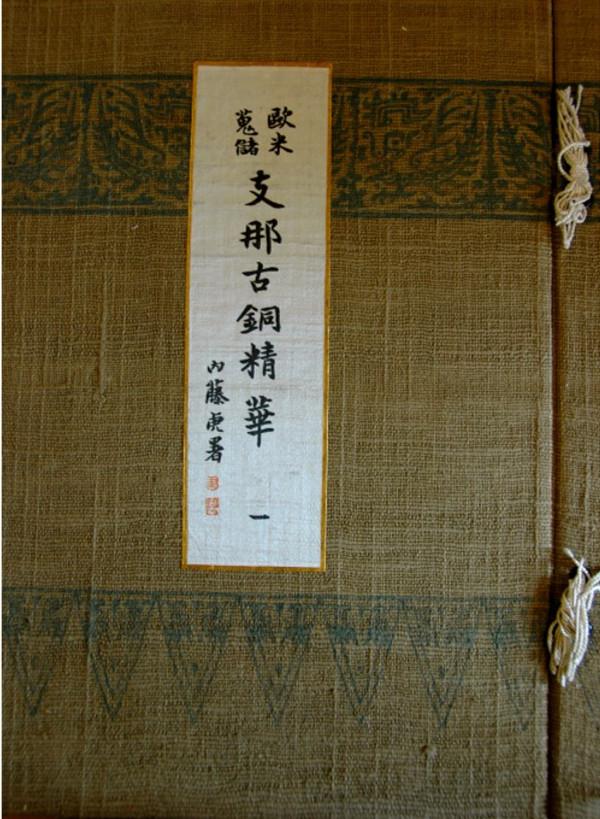 歐米
蒐儲
支那古銅精華
一
內藤虎署